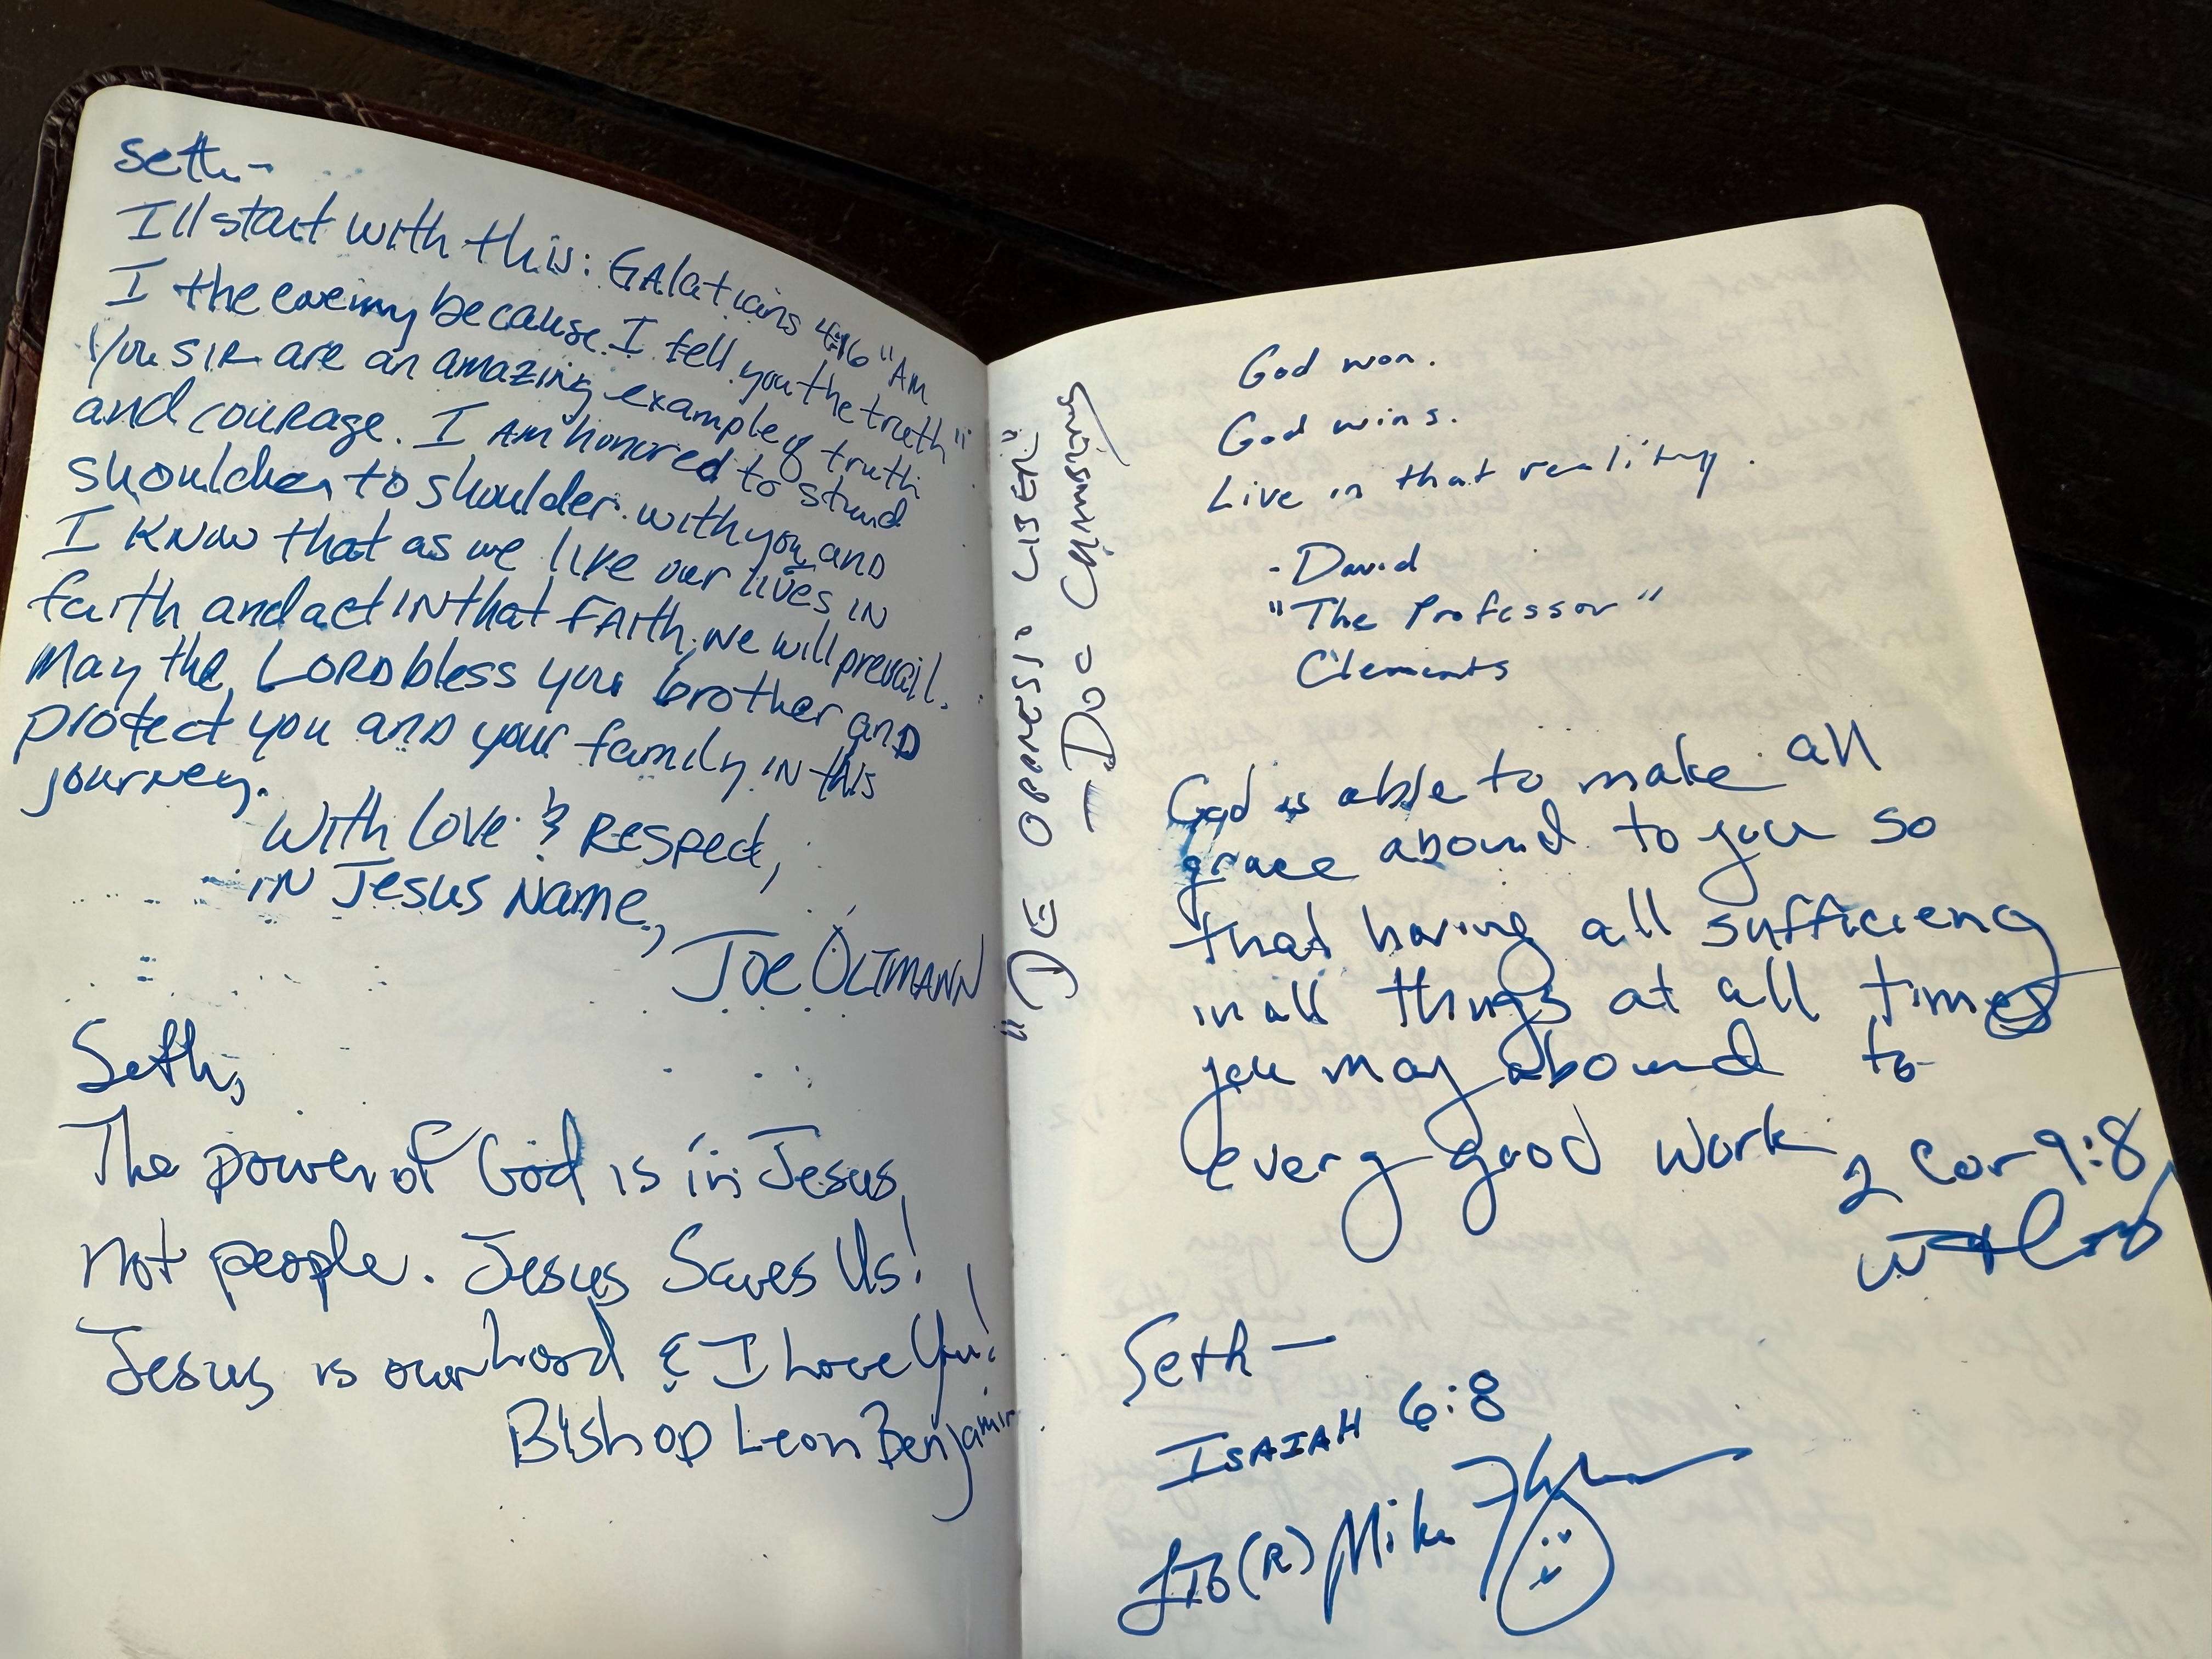 Seth-
Ill start with this: GAlatians 4:16 "Am
I the enemy because I tell you the truth"
You SIR are an amazing example of truth
and courage. I AM honored to stand
shoulder to shoulder with you, and
I KNOW that as we live our lives IN
faith and act IN that FAith, we will prevail.
May the LORD bless you brother and
protect you and your family IN this
journey.
With Love & Respect,
IN Jesus Name,
JOE OLTMANN
Seth,
The power of God is in Jesus,
not people. Jesus Saves Us!
Jesus is our Lord & I Love You!
Bishop Leon Benjamin
"DE OPPRESSO LIBER"
— Doc
God won.
God wins.
Live in that reality.
- David
"The Professor"
Clements
God is able to make all
grace abound to you so
that having all sufficiency
in all things at all times
you may abound to
every good work
2 Cor 9:8
Seth —
ISAIAH 6:8
LTG (R) Mike Flynn